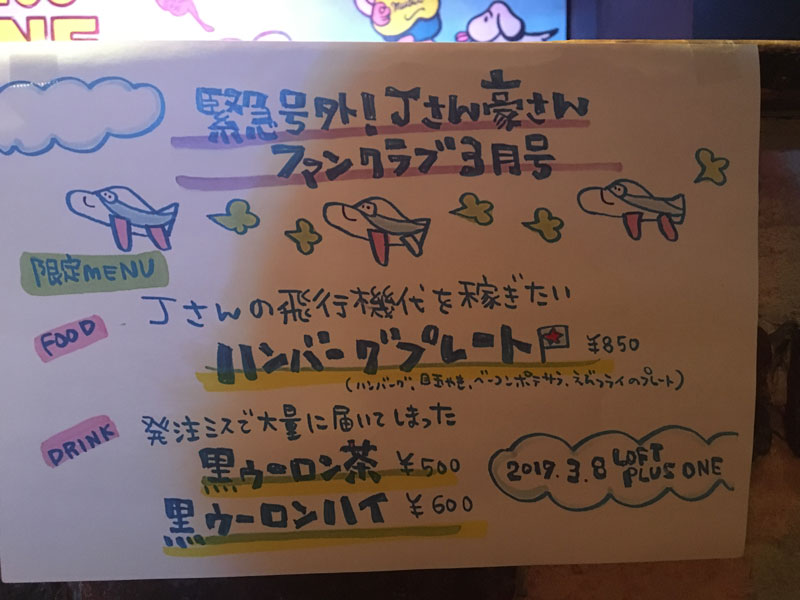 緊急号外!Jさん豪さん
ファンクラブ3月号
限定MENU
Jさんの飛行機代を稼ぎたい
FOOD
ハンバーグプレート ¥850
(ハンバーグ、目玉やき、ベーコンポテサラ、えびフライのプレート)
DRINK
発注ミスで大量に届いてしまった
黒ウーロン茶 ¥500
黒ウーロンハイ ¥600
2019.3.8 LOFT
PLUS ONE